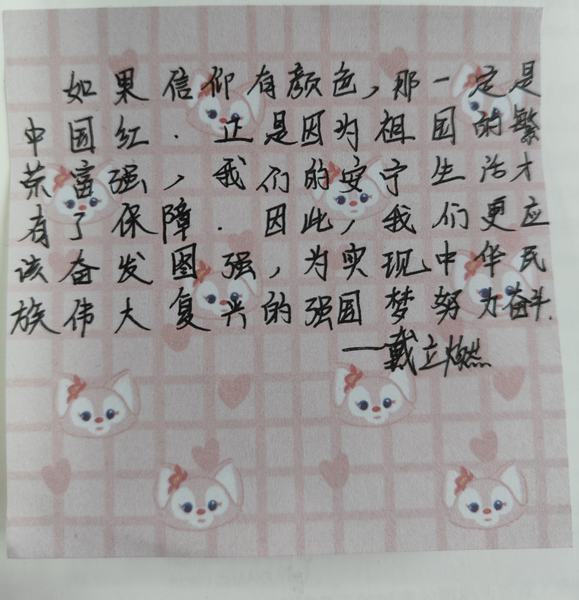 如果信仰有颜色，那一定是
中国红．正是因为祖国的繁
荣富强，我们的安宁生活才
有了保障．因此，我们更应
该奋发图强，为实现中华民
族伟大复兴的强国梦努力奋斗．
——戴立燃